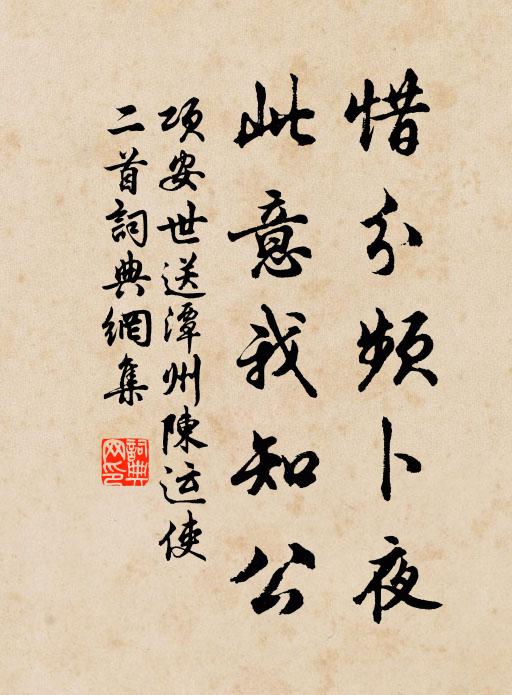 惜分頻卜夜
此意我知公
項安世送潭州陳运使
二首詞典網集
詞典網印